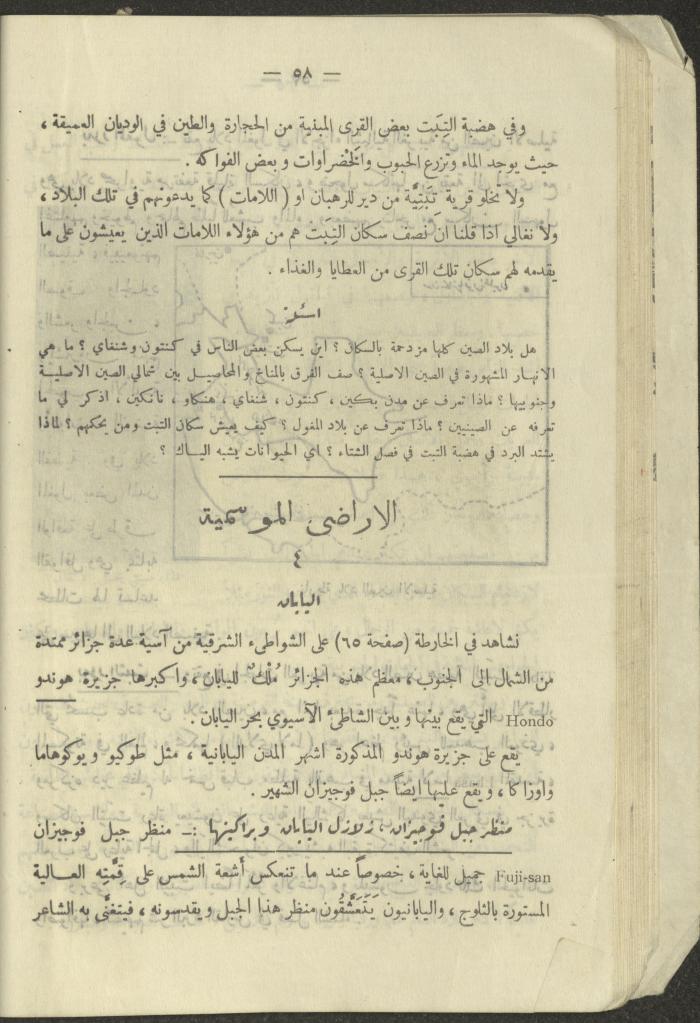 — ٥٨ —
وفي هضبة التِبَت بعض القرى المبنية من الحجارة والطين في الوديان العميقة ،
حيث يوجد الماء وتزرع الحبوب والخَضْراوات وبعض الفواكه .
ولا تخلو قرية تِبَتِيَّة من دير للرهبان او ( اللامات ) كما يدعونهم في تلك البلاد ،
ولا نغالي اذا قلنا ان نصف سكان التِبَت هم من هؤلاء اللامات الذين يعيشون على ما
يقدمه لهم سكان تلك القرى من العطايا والغذاء .
اسئلة
هل بلاد الصين كلها مزدحمة بالسكان ؟ اين يسكن بعض الناس في كنتون وشنغاي ؟ ما هي
الانهار المشهورة في الصين الاصلية ؟ صف الفرق بالمناخ والمحاصيل بين شمالي الصين الاصلية
وجنوبيها ؟ ماذا تعرف عن مدن بكين ، كنتون ، شنغاي ، هنكاو ، نانكين ، اذكر لي ما
تعرفه عن الصينيين ؟ ماذا تعرف عن بلاد المغول ؟ كيف يعيش سكان التبت ومن يحكمهم ؟ لماذا
يشتد البرد في هضبة التبت في فصل الشتاء ؟ اي الحيوانات يشبه الياك ؟
الاراضى الموسمية
٤
اليابان
نشاهد في الخارطة (صفحة ٦٥) على الشواطىء الشرقية من آسية عدة جزائر ممتدة
من الشمال الى الجنوب ، معظم هذه الجزائر مُلْكٌ لليابان ، واكبرها جزيرة هوندو
Hondo التي يقع بينها وبين الشاطئ الآسيوي بحر اليابان .
يقع على جزيرة هوندو المذكورة اشهر المدن اليابانية ، مثل طوكيو ويوكوهاما
واوزاكا ، ويقع عليها ايضاً جبل فوجيزان الشهير .
منظر جبل فوجيزان ، زلازل اليابان وبراكينها :ـ منظر جبل فوجيزان
Fuji-san جميل للغاية ، خصوصاً عند ما تنعكس أشعة الشمس على قِمَّتِه العالية
المستورة بالثلوج ، واليابانيون يَتَعَشَّقُون منظر هذا الجبل ويقدسونه ، فيتغنَّى به الشاعر